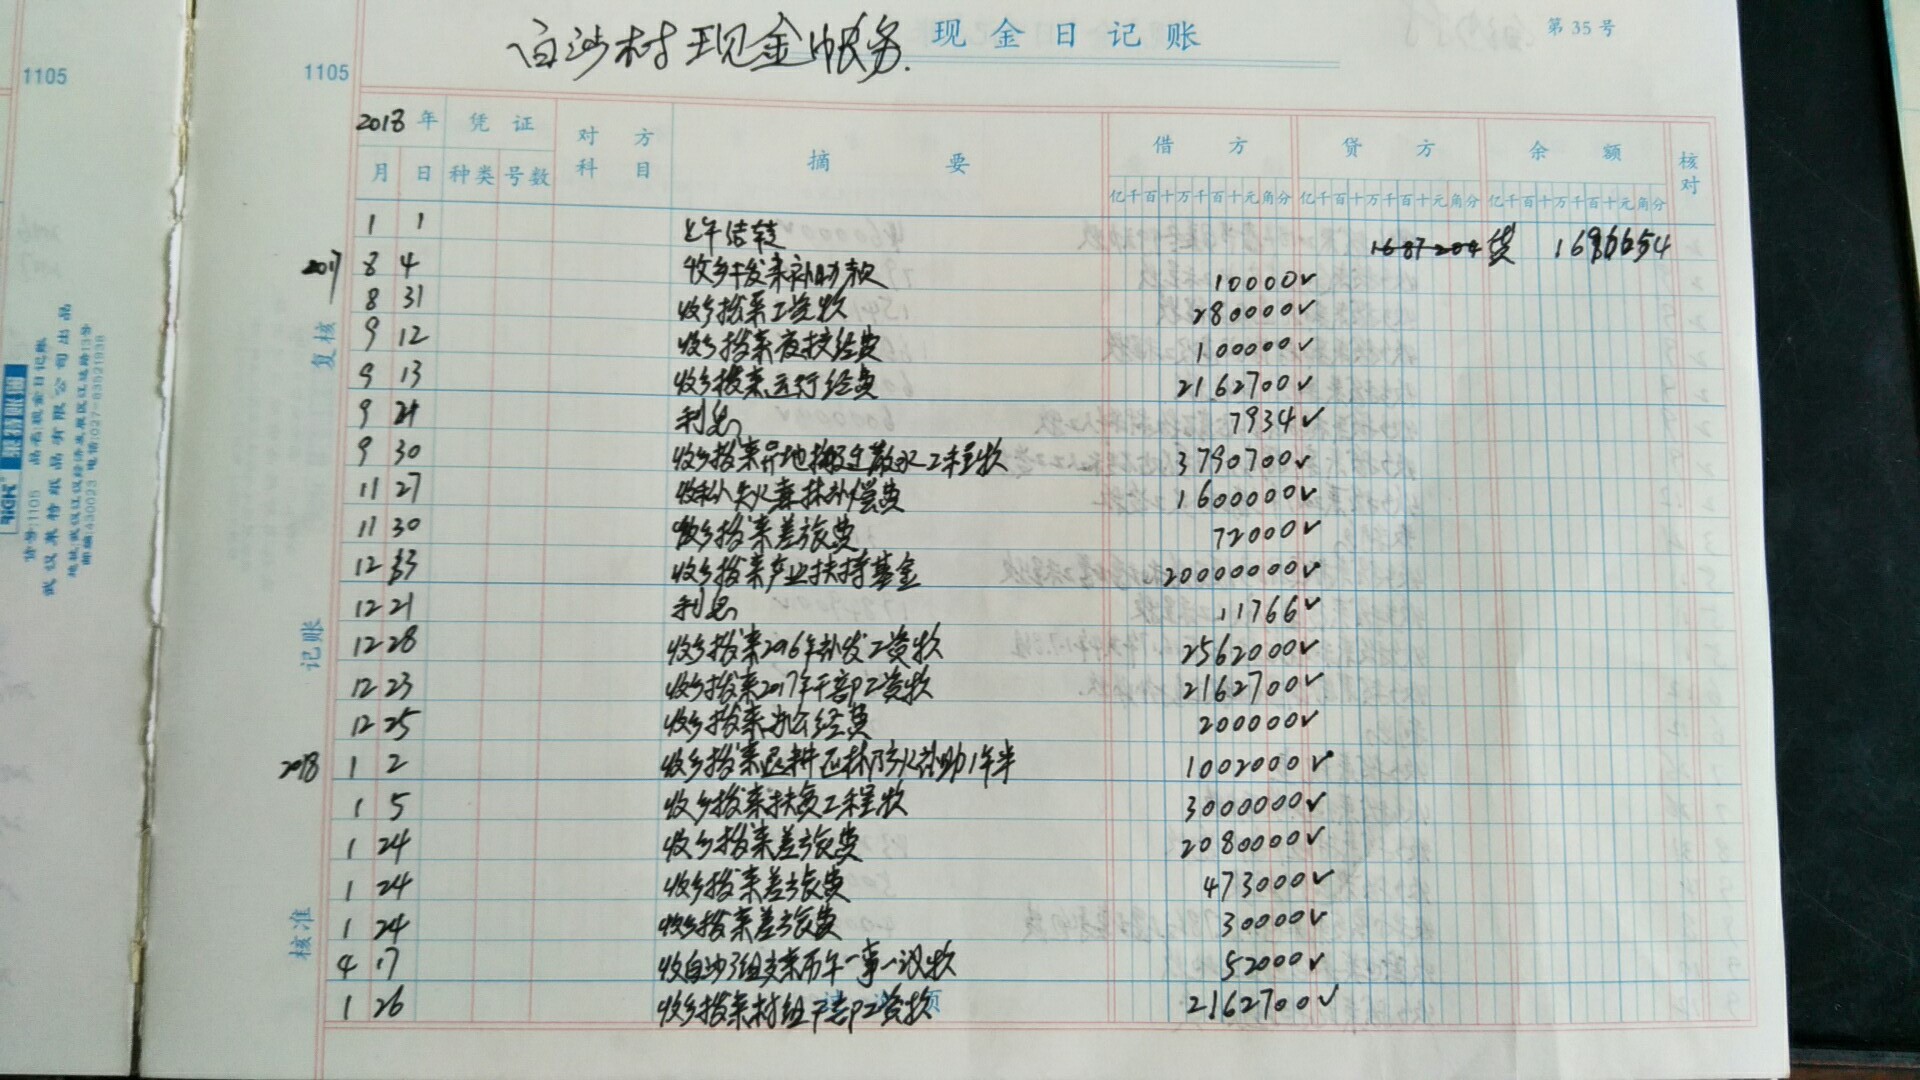 白沙村现金帐务.
现金日记账
第35号
1105
1105
2018年 凭证 对方科目 摘要 借方 贷方 余额 核对
月 日 种类 号数 亿千百十万千百十元角分 亿千百十万千百十元角分 亿千百十万千百十元角分
1 1 上年结转 1687204 贷
2017 8 4 收乡拨来补助款 10000✓
8 31 收乡拨来工资款 280000✓
9 12 收乡拨来夜校经费 100000✓
9 13 收乡拨来运行经费 2162700✓
9 21 利息 7934✓
9 30 收乡拨来异地搬迁散水工程款 3790700✓
11 27 收私人失火毒林补偿费 1600000✓
11 30 收乡拨来差旅费 72000✓
12 收乡拨来产业扶持基金 20000000✓
12 21 利息 11766✓
12 28 收乡拨来2016年补发工资款 2562000✓
12 23 收乡拨来2017年干部工资款 2162700✓
12 25 收乡拨来办公经费 200000✓
2018 1 2 收乡拨来退耕还林防火补助1年半 1002000✓
1 5 收乡拨来扶贫工程款 3000000✓
1 24 收乡拨来差旅费 2080000✓
1 24 收乡拨来差旅费 473000✓
1 24 收乡拨来差旅费 30000✓
4 17 收白沙3组交来历年一事一议款 52000✓
1 26 收乡拨来村组干部工资款 2162700✓
复核
记账
核准
莱特账册
货号:1105 品名:现金日记账
武汉莱特纸品有限公司出品